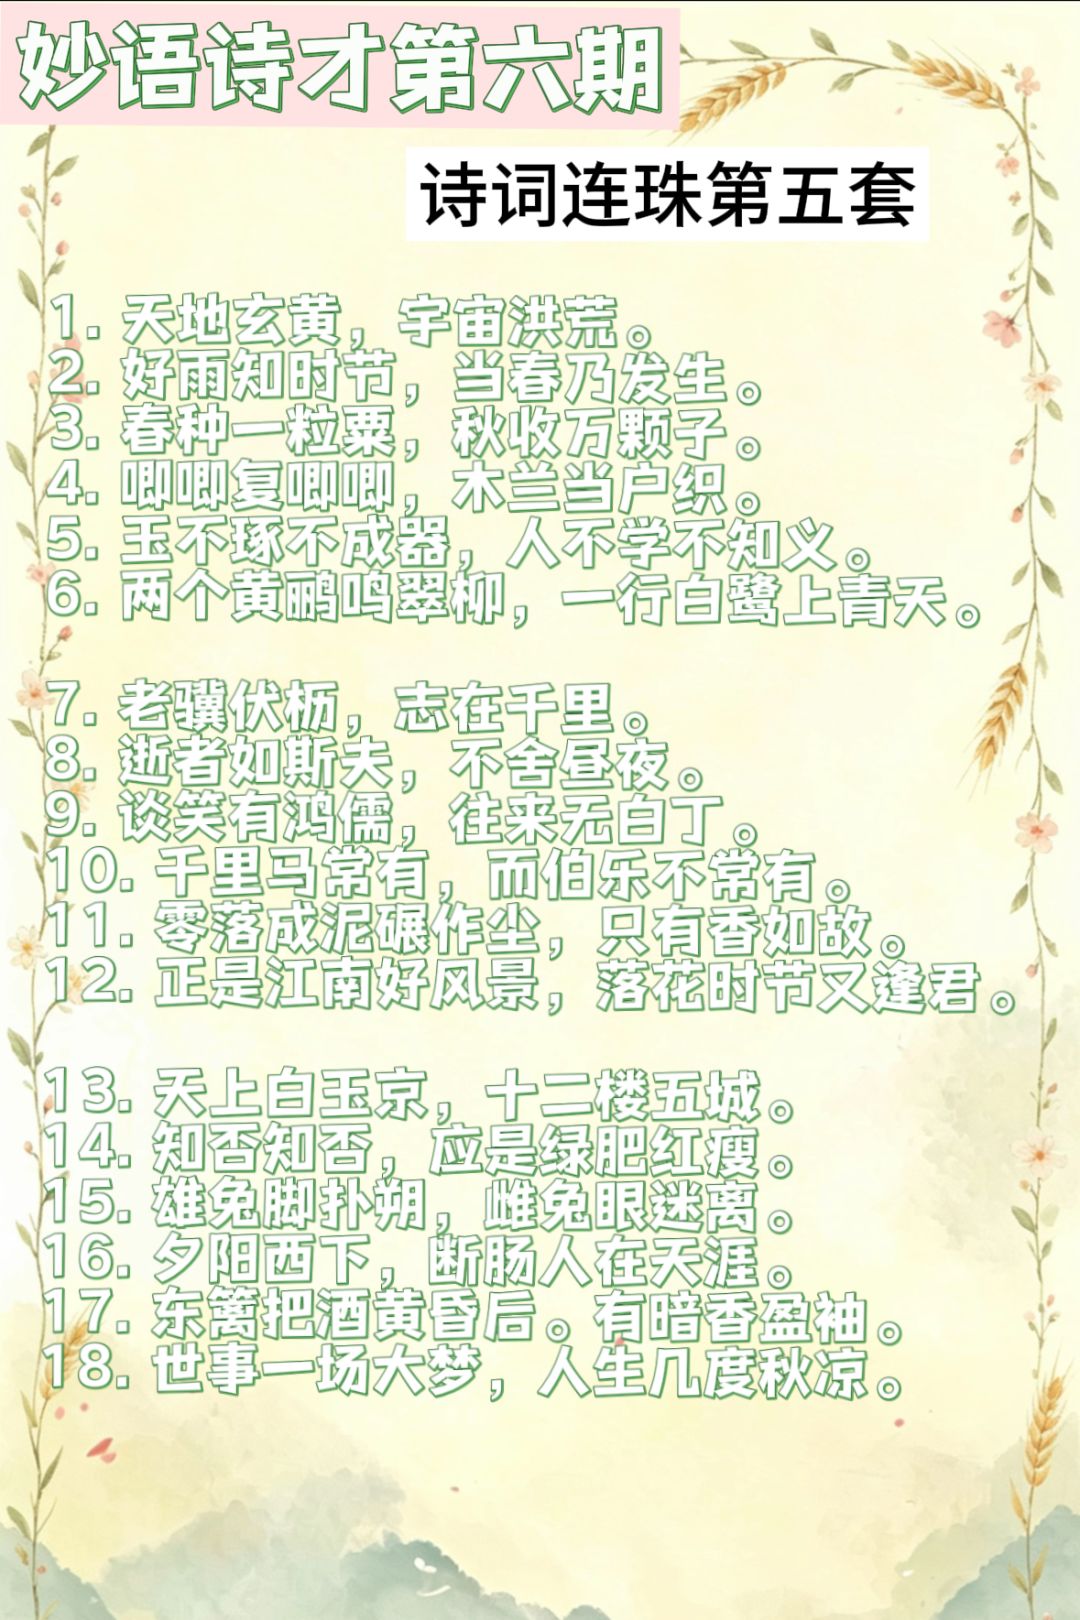 妙语诗才第六期
诗词连珠第五套
1. 天地玄黄，宇宙洪荒。
2. 好雨知时节，当春乃发生。
3. 春种一粒粟，秋收万颗子。
4. 唧唧复唧唧，木兰当户织。
5. 玉不琢不成器，人不学不知义。
6. 两个黄鹂鸣翠柳，一行白鹭上青天。
7. 老骥伏枥，志在千里。
8. 逝者如斯夫，不舍昼夜。
9. 谈笑有鸿儒，往来无白丁。
10. 千里马常有，而伯乐不常有。
11. 零落成泥碾作尘，只有香如故。
12. 正是江南好风景，落花时节又逢君。
13. 天上白玉京，十二楼五城。
14. 知否知否，应是绿肥红瘦。
15. 雄兔脚扑朔，雌兔眼迷离。
16. 夕阳西下，断肠人在天涯。
17. 东篱把酒黄昏后。有暗香盈袖。
18. 世事一场大梦，人生几度秋凉。